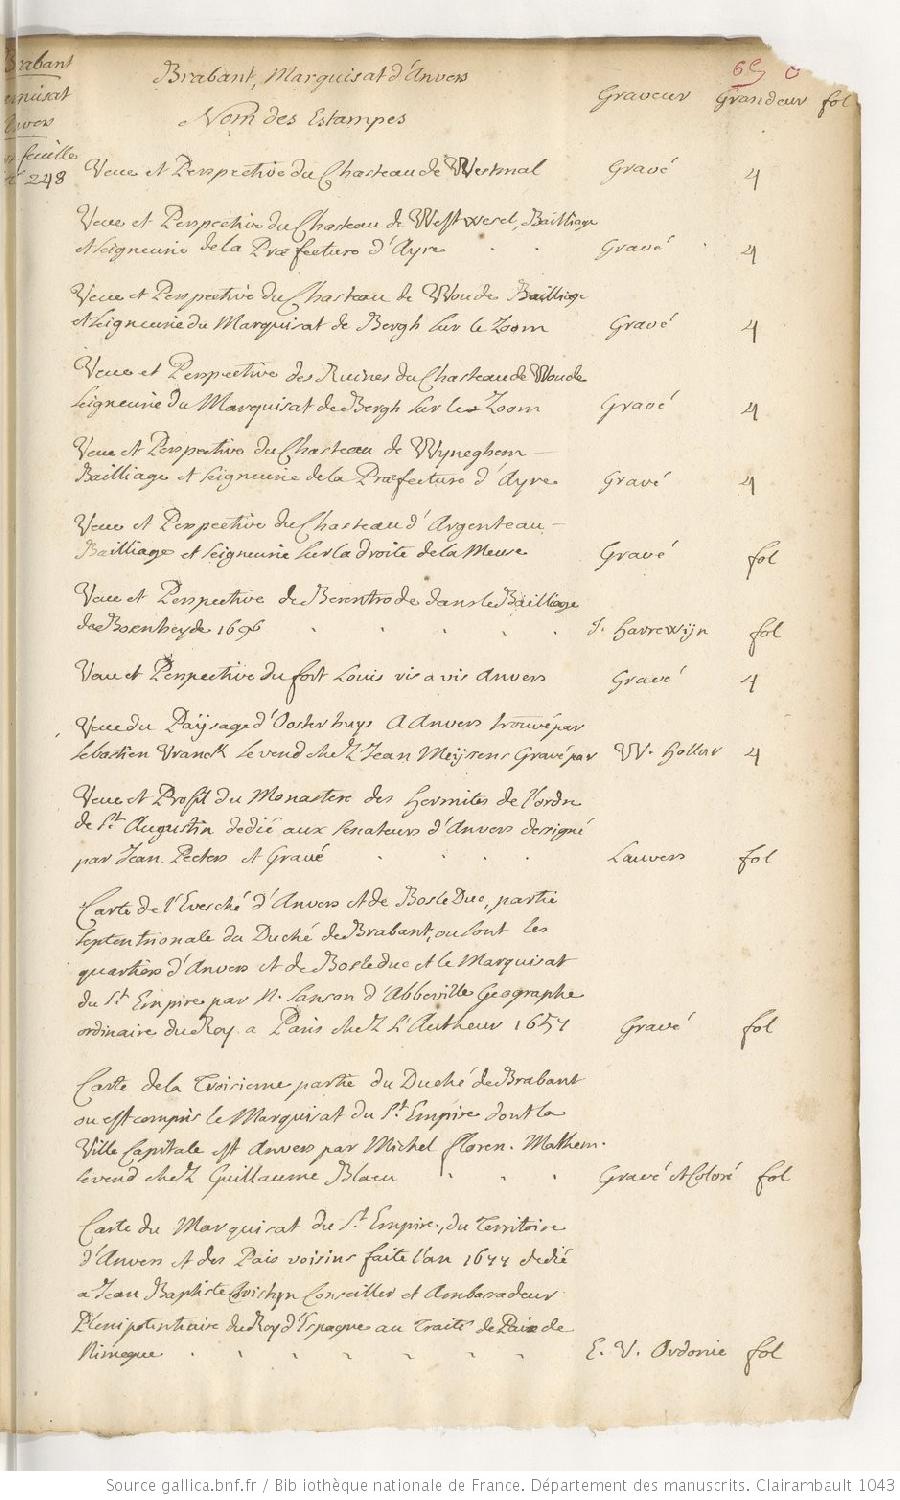 Brabant
Marquisat
d'Anvers
feuilles
248
65
Brabant, Marquisat d'Anvers
Nom des Estampes
Graveur Grandeur fol
Veue et Perspective du Chasteau de Westmal Gravé 4
Veue et Perspective du Chasteau de Westwesel, Bailliage
et seigneurie de la Præfecture d'Ayre . . Gravé . 4
Veue et Perspective du Chasteau de Woude Bailliage
et seigneurie du Marquisat de Bergh sur le Zoom Gravé 4
Veue et Perspective des Ruines du Chasteau de Woude
seigneurie du Marquisat de Bergh sur le Zoom Gravé 4
Veue et Perspective du Chasteau de Wyneghem –
Bailliage et seigneurie de la Præfecture d'Ayre Gravé 4
Veue et Perspective du Chasteau d'Argenteau –
Bailliage et seigneurie sur la droite de la Meuse Gravé fol
Veue et Perspective de Berentrode dans le Bailliage
de Boenheyde 1696 . . . . . J. Harrewijn fol
Veue et Perspective du fort Louis vis a vis Anvers Gravé 4
Veue du Païsage d'Oosterhuys a Anvers trouvé par
Sebastien Vranck se vend chez Jean Meijsens Gravé par W. Hollar 4
Veue et Profil du Monastere des hermites de l'ordre
de St. Augustin dedié aux senateurs d'Anvers designé
par Jean Peeters et Gravé . . . . Lauvers fol
Carte de l'Evesché d'Anvers et de Bosleduc, partie
septentrionale du Duché de Brabant, ou sont les
quartiers d'Anvers et de Bosleduc et le Marquisat
du St. Empire par N. Sanson d'Abbeville Geographe
ordinaire du Roy. a Paris chez l'Autheur 1657 Gravé fol
Carte de la Troisieme partie du Duché de Brabant
ou est compris le Marquisat du St. Empire dont la
Ville Capitale est Anvers par Michel floren. Mathem.
se vend chez Guillaume Blaeu . . . Gravé et Coloré fol
Carte du Marquisat du St. Empire, du territoire
d'Anvers et des Païs voisins faite l'an 1677 dedié
a Jean Baptiste Christyn Conseiller et Ambassadeur
Plenipotentiaire du Roy d'Espagne au Traité de Paix de
Nimegue . . . . . . . E. V. Ordonie fol
Source gallica.bnf.fr / Bibliothèque nationale de France. Département des manuscrits. Clairambault 1043